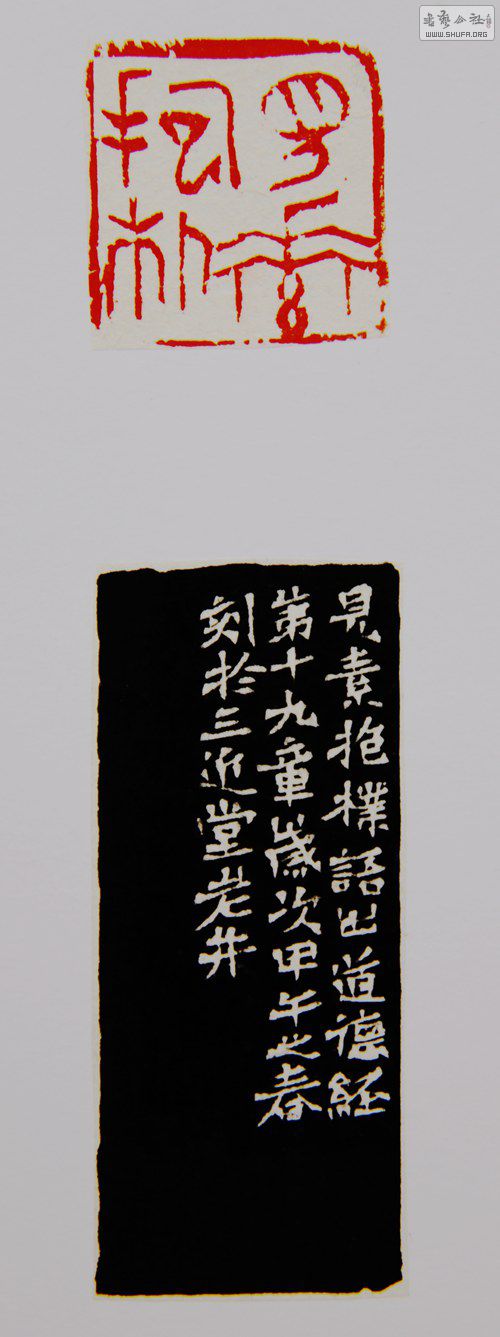 書藝公社
WWW.SHUFA.ORG
見素
抱朴
見素抱樸語出道德經
第十九章歲次甲午之春
刻於三近堂岩井